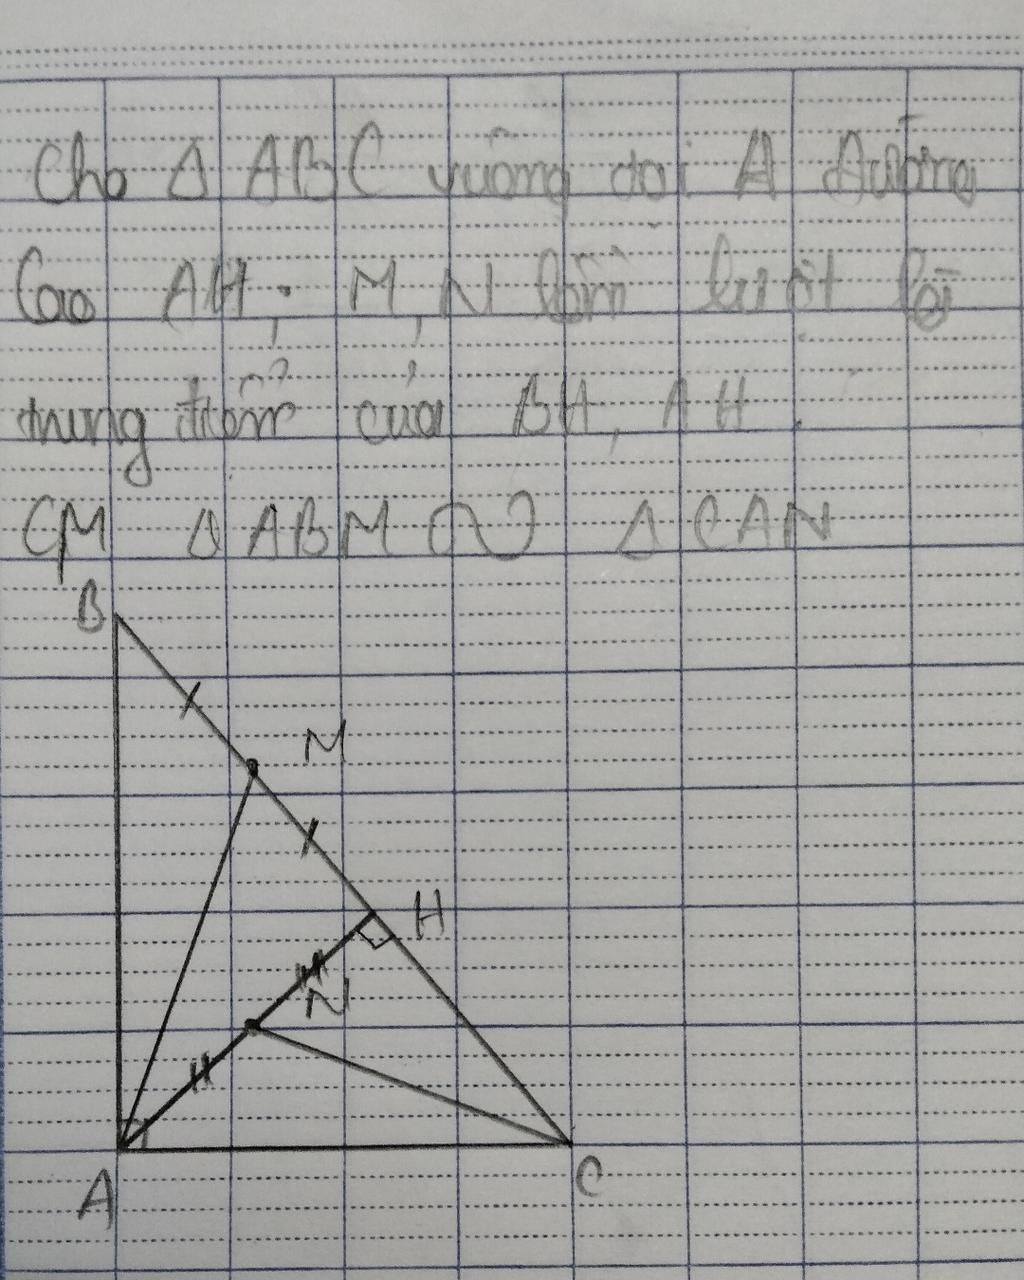 Cho Δ ABC vuông tại A Đường
Cao AH; M, N lần lượt là
trung điểm của BH, AH.
CM Δ ABM ∽ Δ CAN
B
M
H
N
A
C